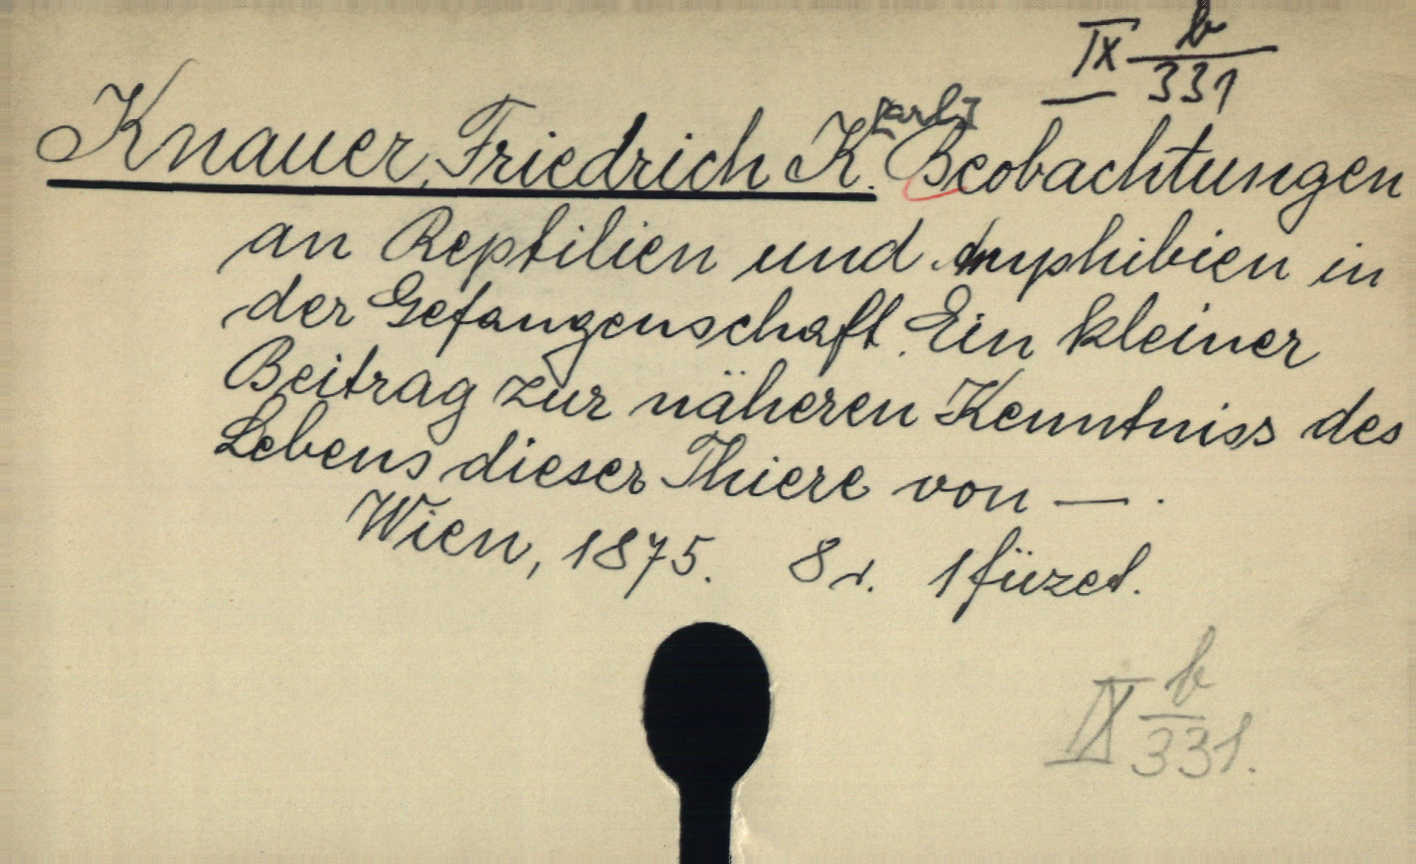 IX b/331
Knauer, Friedrich K.[arl] Beobachtungen
an Reptilien und Amphibien in
der Gefangenschaft. Ein kleiner
Beitrag zur näheren Kenntniss des
Lebens dieser Thiere von — .
Wien, 1875. 8r. 1 füzet.
IX b/331.